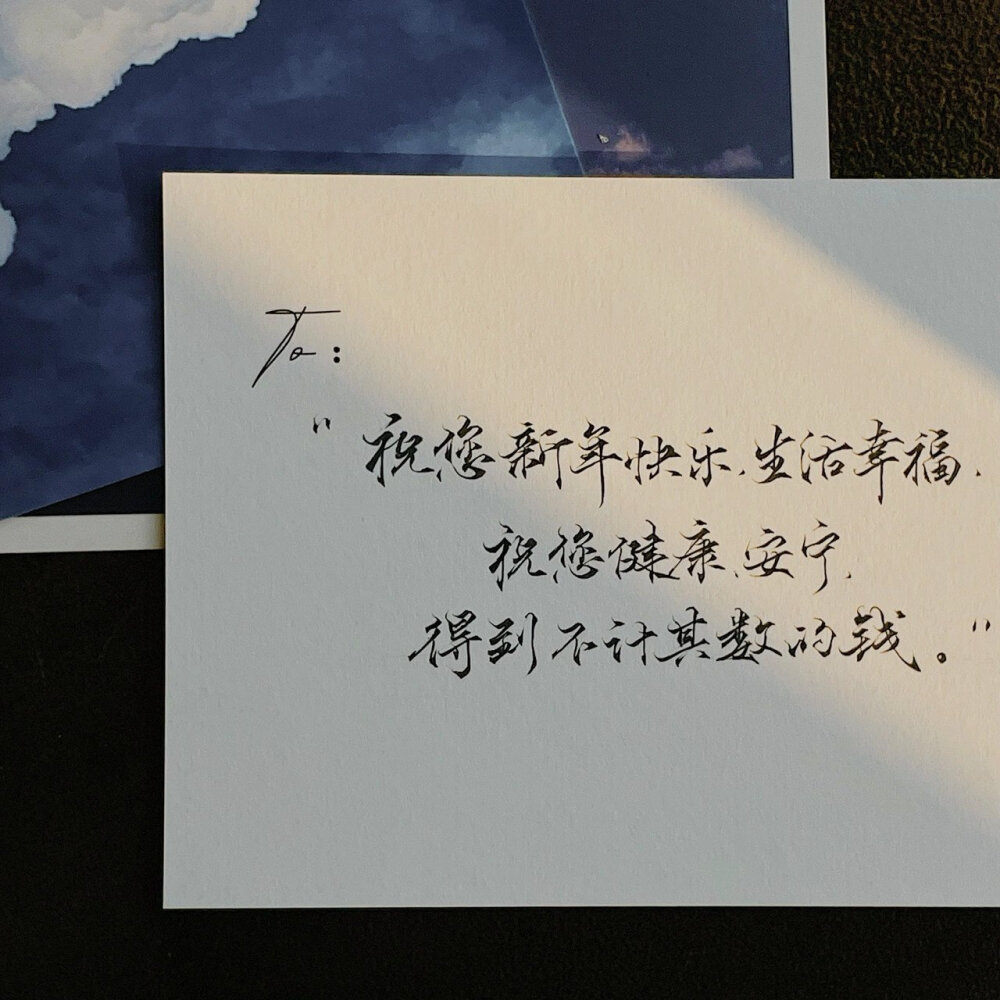 To:
"祝您新年快乐、生活幸福、
祝您健康、安宁、
得到不计其数的钱。"